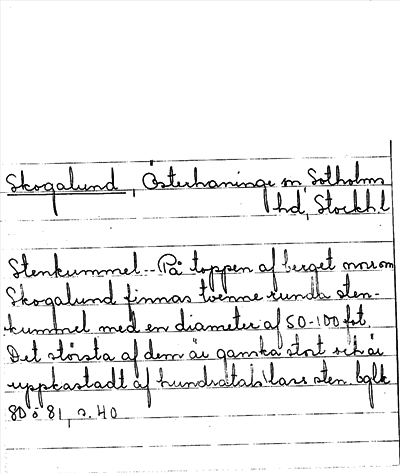 Skogalund, Österhaninge sn, Sotholms
hd, Stockh.l
Stenkummel. - På toppen af berget norrom
Skogalund finnas tvenne runda sten-
kummel med en diameter af 50-100 fot.
Det största af dem är ganska stort och är
uppkastadt af hundratals lass sten.
80 o 81, s. 40